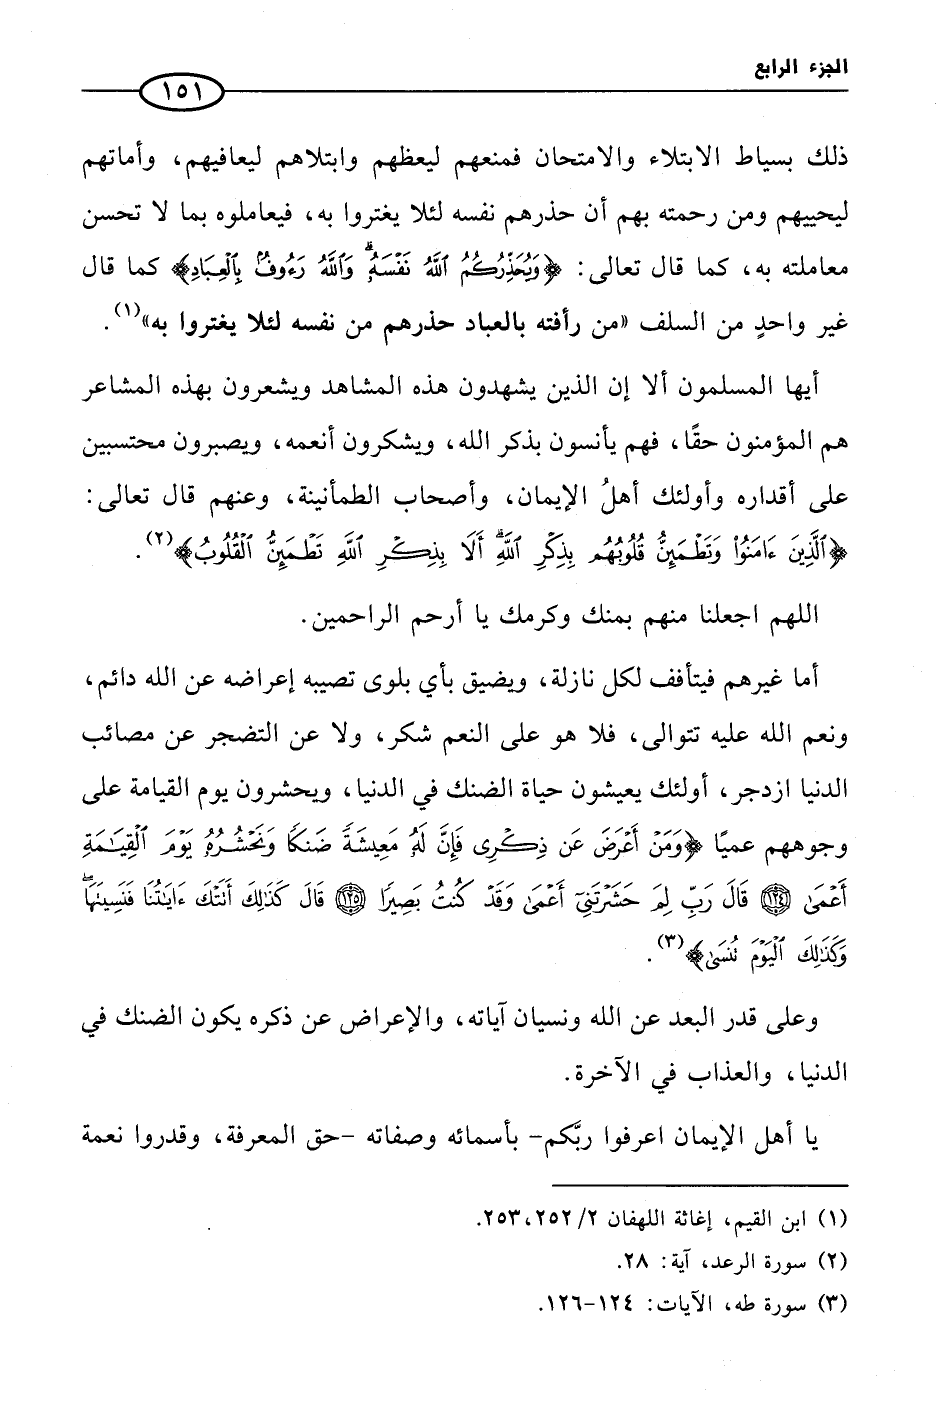 الجزء الرابع
١٥١
ذلك بسياط الابتلاء والامتحان فمنعهم ليعظهم وابتلاهم ليعافيهم، وأماتهم
ليحييهم ومن رحمته بهم أن حذرهم نفسه لئلا يغتروا به، فيعاملوه بما لا تحسن
معاملته به، كما قال تعالى: ﴿وَيُحَذِّرُكُمُ ٱللَّهُ نَفْسَهُۥۗ وَٱللَّهُ رَءُوفٌۢ بِٱلْعِبَادِ﴾ كما قال
غير واحدٍ من السلف «من رأفته بالعباد حذرهم من نفسه لئلا يغتروا به»(١).
أيها المسلمون ألا إن الذين يشهدون هذه المشاهد ويشعرون بهذه المشاعر
هم المؤمنون حقًا، فهم يأنسون بذكر الله، ويشكرون أنعمه، ويصبرون محتسبين
على أقداره وأولئك أهلُ الإيمان، وأصحاب الطمأنينة، وعنهم قال تعالى:
﴿ٱلَّذِينَ ءَامَنُوا۟ وَتَطْمَئِنُّ قُلُوبُهُم بِذِكْرِ ٱللَّهِۗ أَلَا بِذِكْرِ ٱللَّهِ تَطْمَئِنُّ ٱلْقُلُوبُ﴾(٢).
اللهم اجعلنا منهم بمنك وكرمك يا أرحم الراحمين.
أما غيرهم فيتأفف لكل نازلة، ويضيق بأي بلوى تصيبه إعراضه عن الله دائم،
ونعم الله عليه تتوالى، فلا هو على النعم شكر، ولا عن التضجر عن مصائب
الدنيا ازدجر، أولئك يعيشون حياة الضنك في الدنيا، ويحشرون يوم القيامة على
وجوههم عميًا ﴿وَمَنْ أَعْرَضَ عَن ذِكْرِى فَإِنَّ لَهُۥ مَعِيشَةً ضَنكًا وَنَحْشُرُهُۥ يَوْمَ ٱلْقِيَٰمَةِ
أَعْمَىٰ ١٢٤ قَالَ رَبِّ لِمَ حَشَرْتَنِىٓ أَعْمَىٰ وَقَدْ كُنتُ بَصِيرًا ١٢٥ قَالَ كَذَٰلِكَ أَتَتْكَ ءَايَٰتُنَا فَنَسِينَهَاۖ
وَكَذَٰلِكَ ٱلْيَوْمَ تُنسَىٰ﴾(٣).
وعلى قدر البعد عن الله ونسيان آياته، والإعراض عن ذكره يكون الضنك في
الدنيا، والعذاب في الآخرة.
يا أهل الإيمان اعرفوا ربَّكم- بأسمائه وصفاته -حق المعرفة، وقدروا نعمة
(١) ابن القيم، إغاثة اللهفان ٢/ ٢٥٢، ٢٥٣.
(٢) سورة الرعد، آية: ٢٨.
(٣) سورة طه، الآيات: ١٢٤-١٢٦.